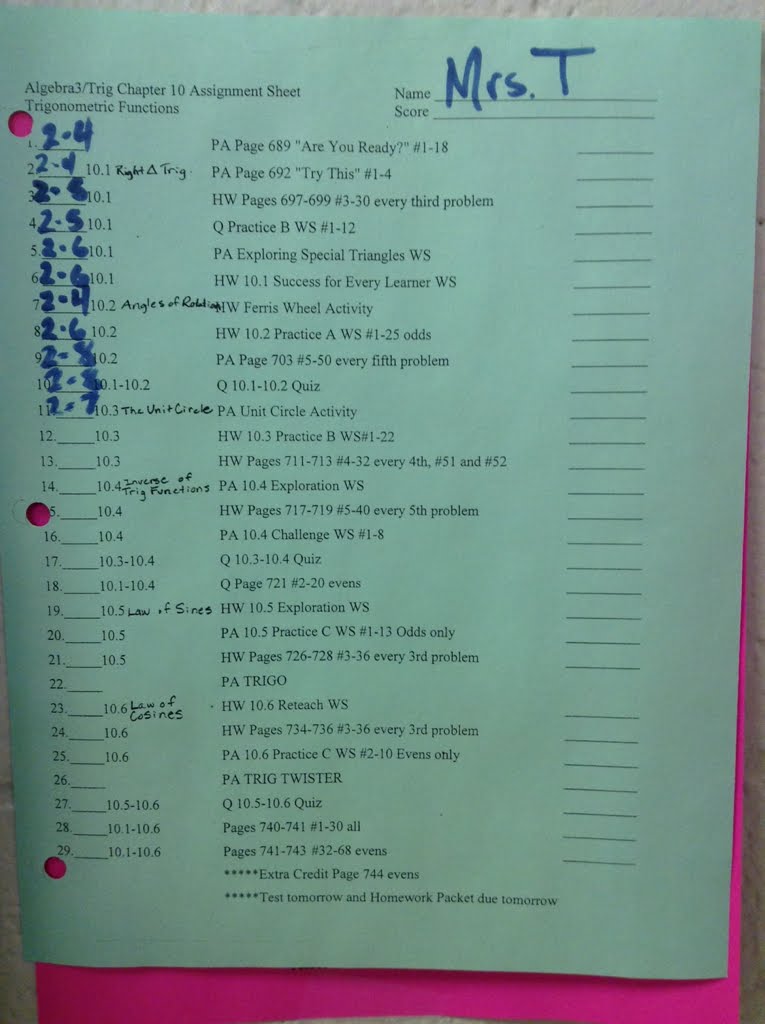 Algebra3/Trig Chapter 10 Assignment Sheet Name Mrs. T
Trigonometric Functions Score
1. 2-4 PA Page 689 "Are You Ready?" #1-18
2. 2-4 10.1 Right Δ Trig. PA Page 692 "Try This" #1-4
3. 2-5 10.1 HW Pages 697-699 #3-30 every third problem
4. 2-5 10.1 Q Practice B WS #1-12
5. 2-6 10.1 PA Exploring Special Triangles WS
6. 2-6 10.1 HW 10.1 Success for Every Learner WS
7. 2-4 10.2 Angles of Rotation HW Ferris Wheel Activity
8. 2-6 10.2 HW 10.2 Practice A WS #1-25 odds
9. 2-8 10.2 PA Page 703 #5-50 every fifth problem
10. 2-8 10.1-10.2 Q 10.1-10.2 Quiz
11. 2-7 10.3 The Unit Circle PA Unit Circle Activity
12. 10.3 HW 10.3 Practice B WS#1-22
13. 10.3 HW Pages 711-713 #4-32 every 4th, #51 and #52
14. 10.4 Inverse of Trig Functions PA 10.4 Exploration WS
5. 10.4 HW Pages 717-719 #5-40 every 5th problem
16. 10.4 PA 10.4 Challenge WS #1-8
17. 10.3-10.4 Q 10.3-10.4 Quiz
18. 10.1-10.4 Q Page 721 #2-20 evens
19. 10.5 Law of Sines HW 10.5 Exploration WS
20. 10.5 PA 10.5 Practice C WS #1-13 Odds only
21. 10.5 HW Pages 726-728 #3-36 every 3rd problem
22. PA TRIGO
23. 10.6 Law of Cosines HW 10.6 Reteach WS
24. 10.6 HW Pages 734-736 #3-36 every 3rd problem
25. 10.6 PA 10.6 Practice C WS #2-10 Evens only
26. PA TRIG TWISTER
27. 10.5-10.6 Q 10.5-10.6 Quiz
28. 10.1-10.6 Pages 740-741 #1-30 all
29. 10.1-10.6 Pages 741-743 #32-68 evens
*****Extra Credit Page 744 evens
*****Test tomorrow and Homework Packet due tomorrow